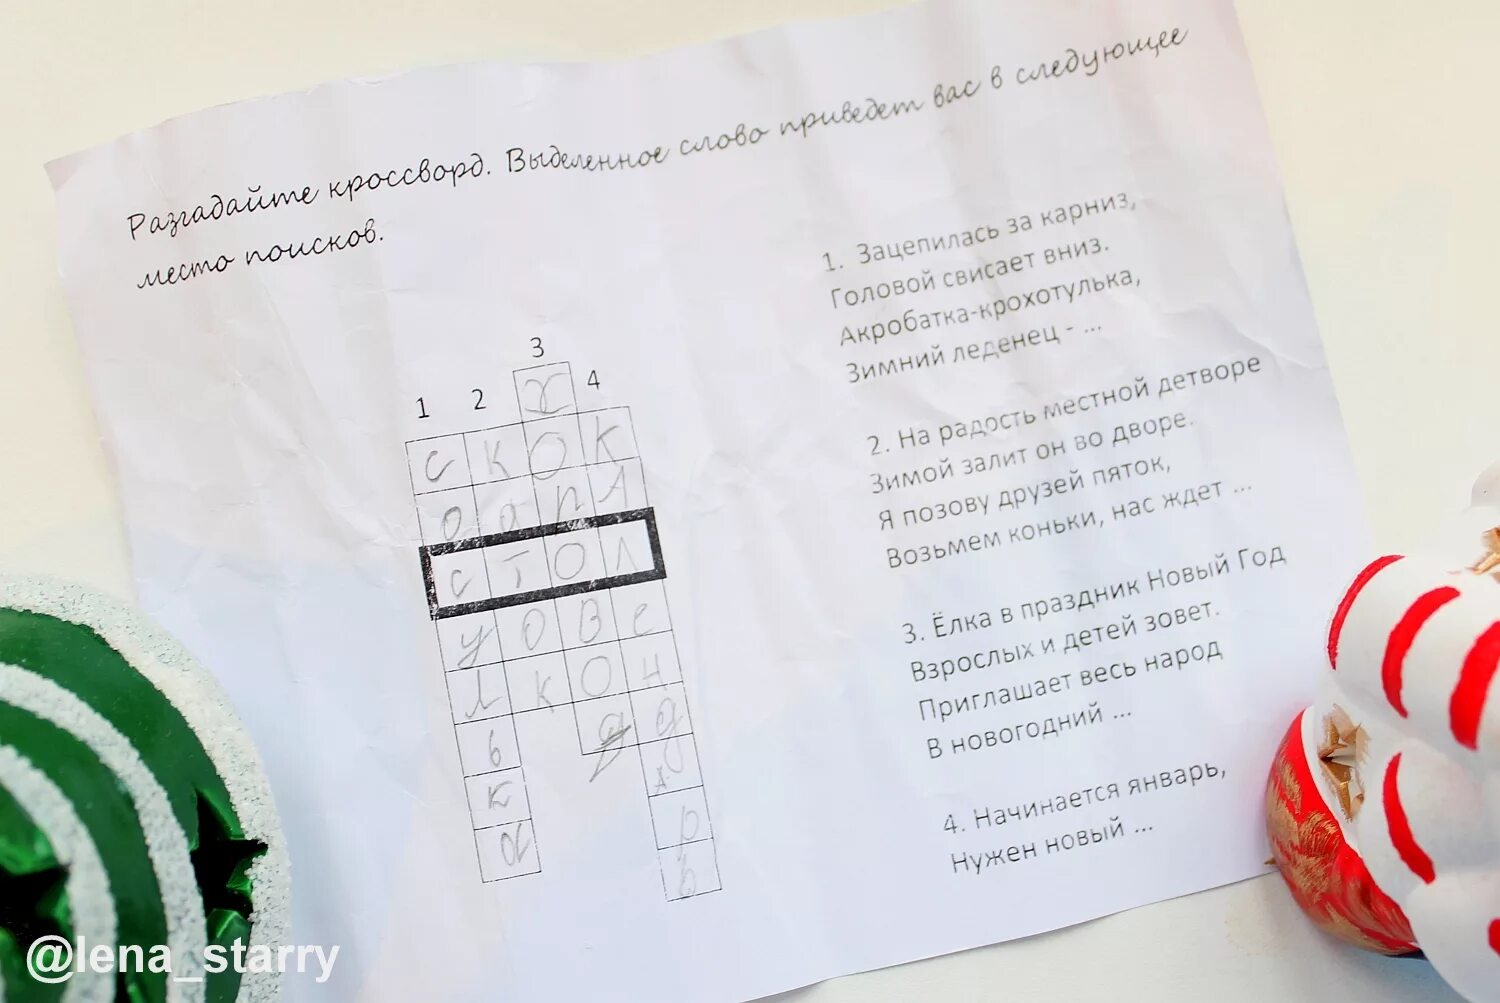 Разгадайте кроссворд. Выделенное слово приведет вас в следующее
место поисков.
3
1 2 4
х
с к о к
о а р а
с т о л
у о в е
л к о н
ь д д
к а
а р
ь
1. Зацепилась за карниз,
Головой свисает вниз.
Акробатка-крохотулька,
Зимний леденец - ...
2. На радость местной детворе
Зимой залит он во дворе.
Я позову друзей пяток,
Возьмем коньки, нас ждет ...
3. Ёлка в праздник Новый Год
Взрослых и детей зовет.
Приглашает весь народ
В новогодний ...
4. Начинается январь,
Нужен новый ...
@lena_starry